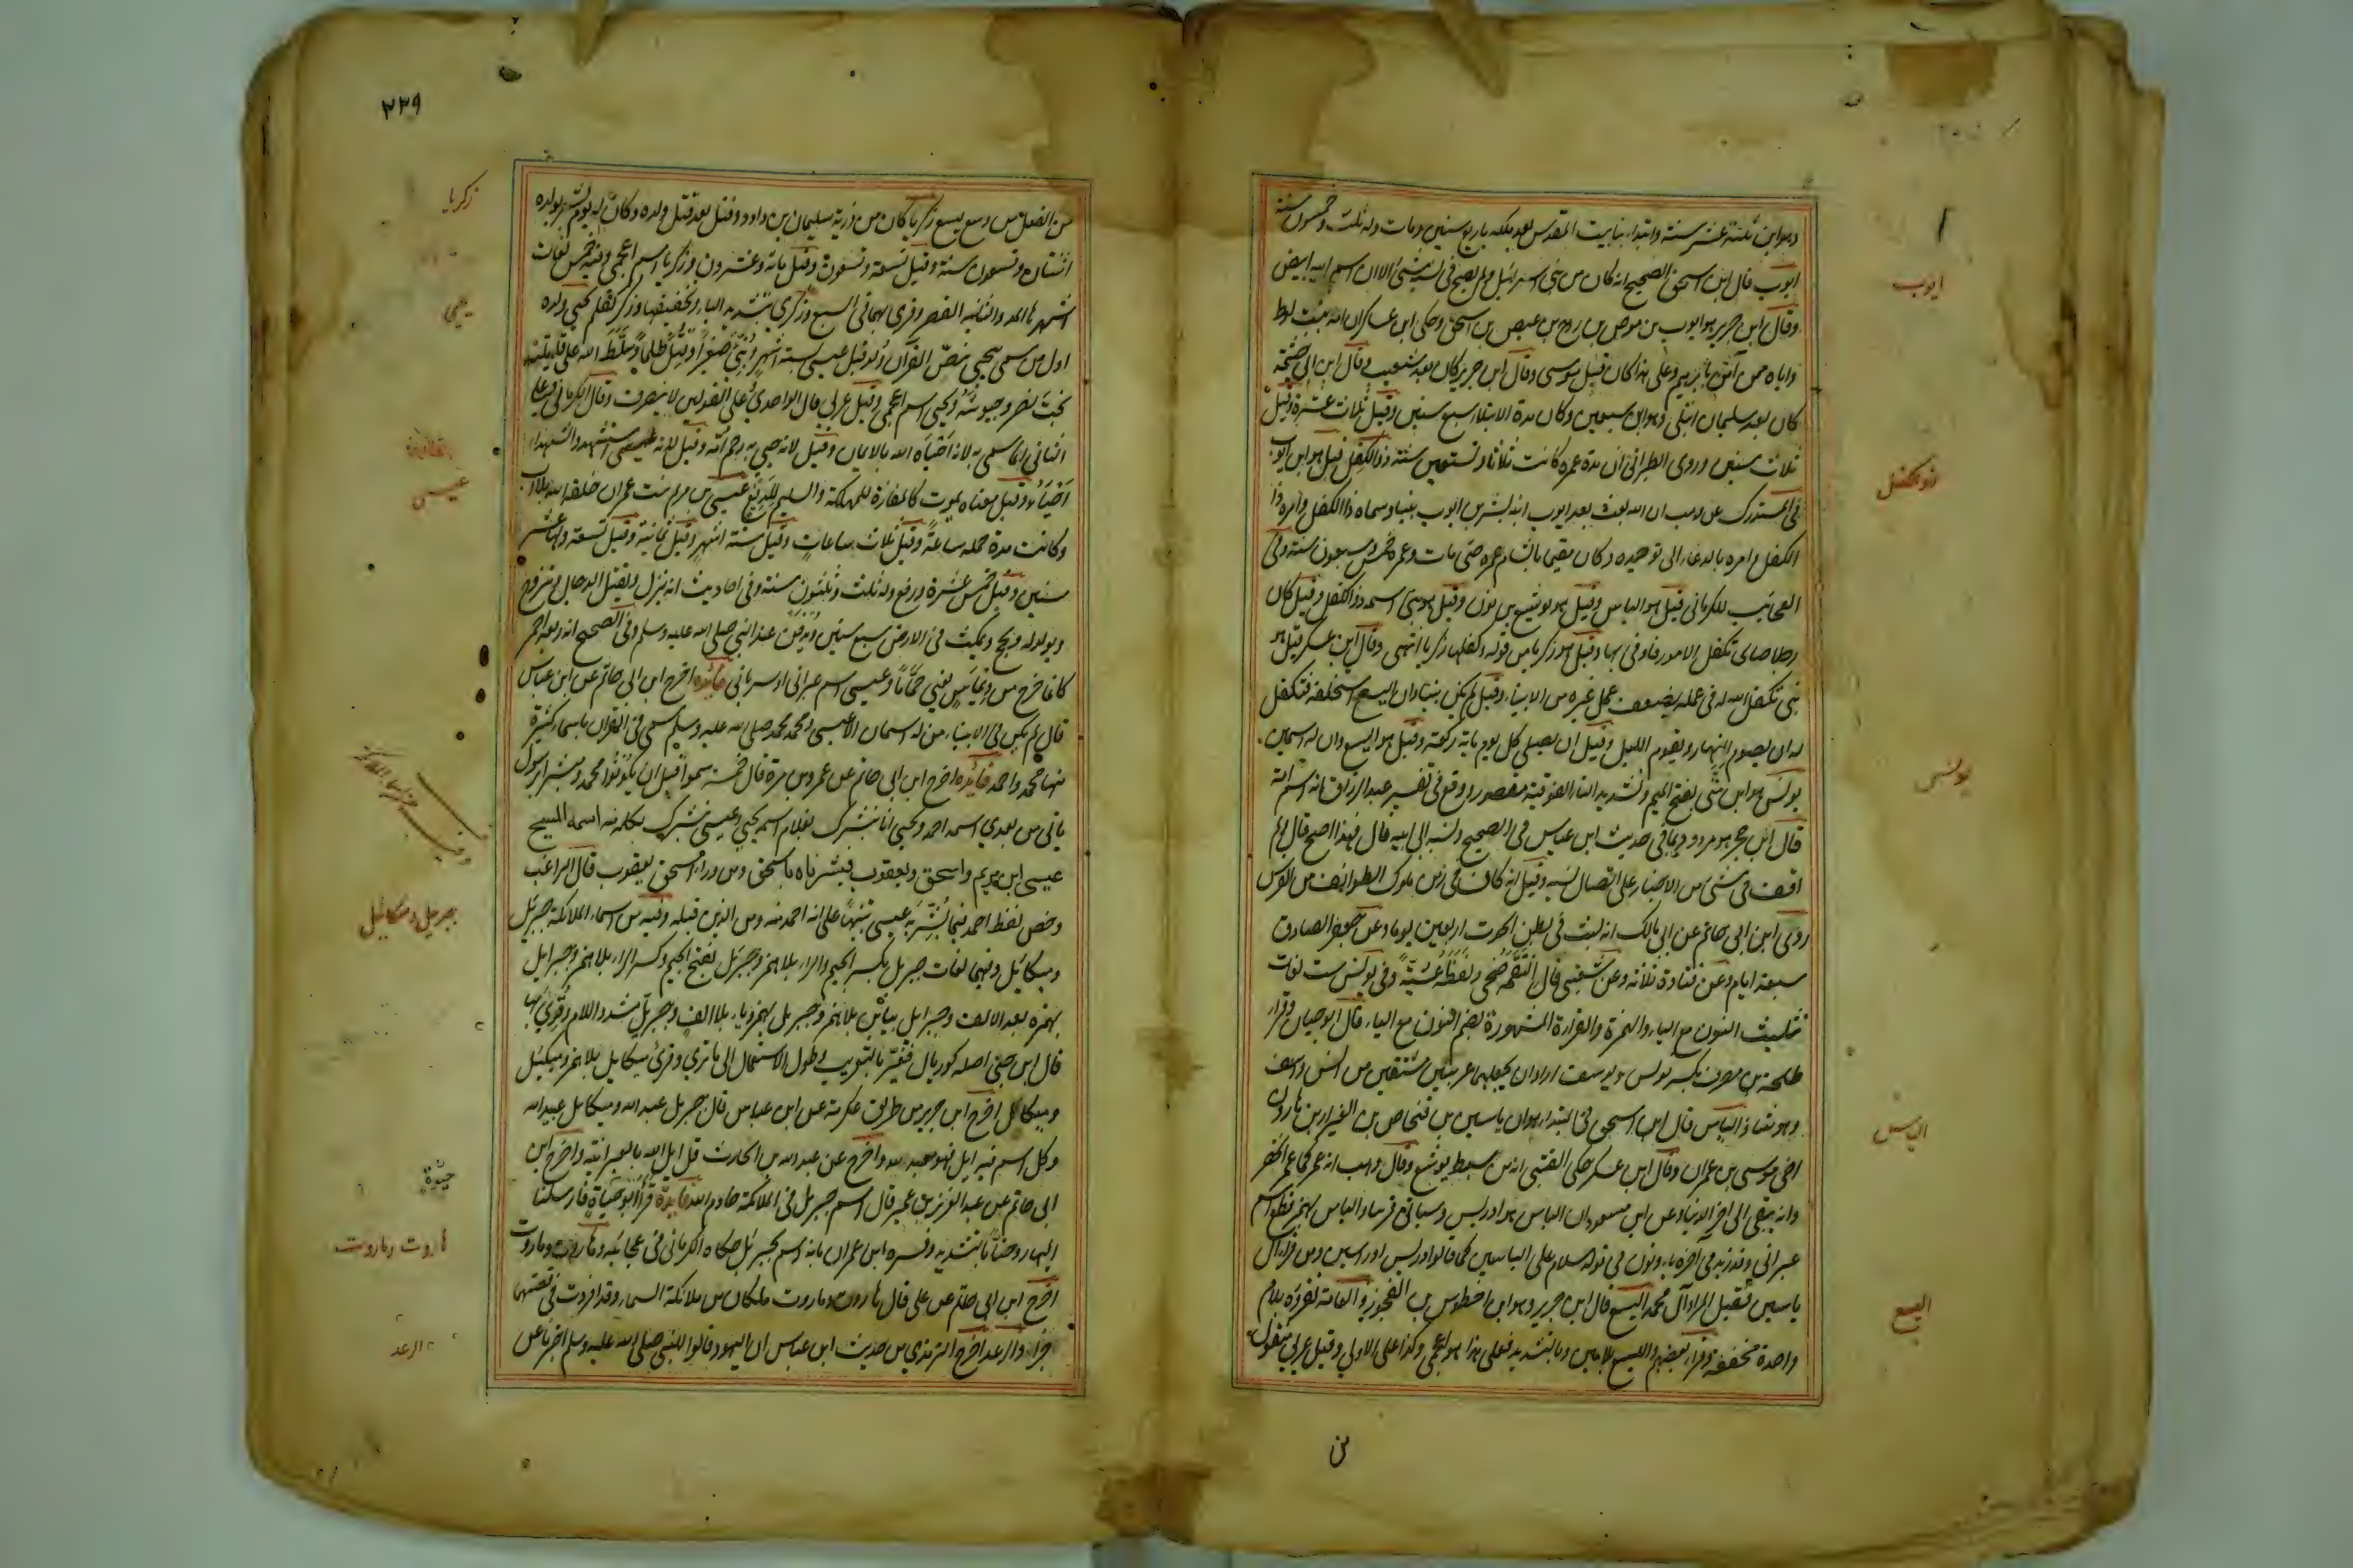 وهو ابن ثلثة عشر سنة وابتداء بنا بيت المقدس بعد ملكه باربع سنين ومات وله ثلث وخمسون سنة
ايوب قال ابن اسحق الصحيح انه كان من بني اسرائيل ولم يصح في نسبه شيئ الا ان اسم ابيه ابيض
وقال ابن جرير هو ايوب بن موص بن روح بن عيص بن اسحق وحكى ابن عساكر ان امه بنت لوط
وان اباه ممن آمن بابرهيم وعلى هذا كان قبل موسى وقال ابن جرير كان بعد شعيب وقال ابن ابي خيثمة
كان بعد سليمان ابتلي وهو ابن سبعين وكان مدة الابتلا سبع سنين وقيل ثلاث عشرة وقيل
ثلاث سنين وروى الطبراني ان مدة عمره كانت ثلاثا وتسعين سنة ذو الكفل قيل هو ابن ايوب
في المستدرك عن وهب ان الله بعث بعد ايوب ابنه بشر بن ايوب نبيا وسماه ذا الكفل وامره
الكفل وامره بالدعاء الى توحيده وكان مقيما بالشام عمره حتى مات وعمره خمس وسبعون سنة وفي
العجائب للكرماني قيل هو الياس وقيل هو يوشع بن نون وقيل هو نبي اسمه ذو الكفل وقيل كان
رجلا صالحا تكفل الامور فاوفى بها وقيل هو زكريا من قوله وكفلها زكريا انتهى وقال ابن عسكر قيل هو
نبي تكفل الله له في عمله بضعف عمل غيره من الانبياء وقيل لم يكن نبيا وان اليسع استخلفه فتكفل
له ان يصوم النهار ويقوم الليل وقيل ان يصلي كل يوم ماية ركعة وقيل هو اليسع وان له اسمين
يونس هو ابن متى بفتح الميم وتشديد التاء الفوقية مقصور ووقع في تفسير عبد الرزاق انه اسم امه
قال ابن حجر هو مردود بما في حديث ابن عباس في الصحيح ونسبه الى ابيه قال فهذا اصح قال ولم
اقف في شئ من الاخبار على اتصال نسبه وقيل انه كان في زمن ملوك الطوائف من الفرس
روى ابن ابي حاتم عن ابي مالك انه لبث في بطن الحوت اربعين يوما وعن جعفر الصادق
سبعة ايام وعن قتادة ثلاثة وعن شعبي قال التقمه ضحى ولفظه عشية وفي يونس ست لغات
تثليث النون مع الياء والهمزة والقراءة المشهورة بضم النون مع الياء قال ابو حيان وقرا
طلحة بن مصرف بكسر يونس ويوسف اراد ان يجعلهما عربيين مشتقين من انس واسف
وهو شاذ الياس قال ابن اسحق في المبتدا هو ابن ياسين بن فنحاص بن العيزار بن هارون
اخي موسى بن عمران وقال ابن عسكر حكى القتبي انه من سبط يوشع وقال وهب انه عمر كما عمر الخضر
وانه يبقى الى اخر الدنيا وعن ابن مسعود ان الياس هو ادريس وسياتي قريبا والياس بهمز قطع اسم
عبراني وقد زيد في اخره ياء ونون في قوله سلام على الياسين كما قالوا ادريس ادراسين ومن قرا آل
ياسين فقيل المراد آل محمد اليسع قال ابن جرير وهو ابن اخطوب بن العجوز والعامة تقرؤه بلام
واحدة مخففة وقراء بعضهم والليسع بلامين وبالتشديد فعلى هذا هو اعجمي وكذا على الاولى وقيل عربي منقول
من
ايوب
ذو الكفل
يونس
الياس
اليسع
٢٢٩
من الفعل من وسع يسع زكريا كان من ذرية سليمان بن داود وقتل بعد قتل ولده وكان له يوم بشر بولده
اثنتان وتسعون سنة وقيل تسعة وتسعون وقيل ماية وعشرون وزكريا اسم اعجمي وفيه خمس لغات
اشهرها المد والثانية القصر وقرى بهما في السبع وزكري بتشديد الياء وتخفيفها وزكر كقلم يحيى ولده
اول من سمي يحيى بنص القرآن ولد قبل عيسى بستة اشهر ونبئ صغيرا وقتل ظلما وسلط الله على قاتليه
بخت نصر وجيوشه ويحيى اسم اعجمي وقيل عربي قال الواحدي وعلى القولين لا ينصرف وقال الكرماني وعلى
الثاني انما سمي به لانه احياه الله بالايمان وقيل لانه حيي به رحم امه وقيل لانه استشهد والشهداء
احياء وقيل معناه يموت كالمفازة للمهلكة والسليم للديغ عيسى بن مريم بنت عمران خلقه الله بلا اب
وكانت مدة حمله ساعة وقيل ثلاث ساعات وقيل ستة اشهر وقيل ثمانية وقيل تسعة ولها عشر
سنين وقيل خمس عشرة ورفع وله ثلث وثلثون سنة وفي احاديث انه ينزل ويقتل الدجال ويتزوج
ويولد له ويحج ويمكث في الارض سبع سنين ويدفن عند النبي صلى الله عليه وسلم وفي الصحيح انه ربعة احمر
كانما خرج من ديماس يعني حماما وعيسى اسم عبراني او سرياني فايده اخرج ابن ابي حاتم عن ابن عباس
قال لم يكن في الانبياء من له اسمان الا عيسى ومحمد محمد صلى الله عليه وسلم سمي في القرآن باسماء كثيرة
منها محمد واحمد فايده اخرج ابن ابي حاتم عن عمرو بن مرة قال خمسة سموا قبل ان يكونوا محمد ومبشرا برسول
ياتي من بعدي اسمه احمد ويحيى انا نبشرك بغلام اسمه يحيى وعيسى نبشرك بكلمة منه اسمه المسيح
عيسى ابن مريم واسحق ويعقوب فبشرناه باسحق ومن وراء اسحق يعقوب قال الراغب
وخص لفظ احمد فيما بشر به عيسى تنبيها على انه احمد منه ومن الذين قبله وفيه من اسماء الملائكة جبريل
وميكائل وفيهما لغات جبريل بكسر الجيم والراء بلا همز وجبريل بفتح الجيم وكسر الراء بلا همز وجبرايل
بهمزة بعد الالف وجبرايل بيائين بلا همز وجبريل بهمز وياء بلا الف وجبرئل مشدد اللام وقرئ بها
قال ابن جني اصله كوريال فغير بالتعريب وطول الاستعمال الى ما ترى وقرئ ميكايل بلا همز وميكئل
وميكال اخرج ابن جرير من طريق عكرمة عن ابن عباس قال جبريل عبد الله وميكايل عبيد الله
وكل اسم فيه ايل فهو معبد لله واخرج عن عبد الله بن الحارث قال ايل الله بالعبرانية واخرج ابن
ابي حاتم عن عبد العزيز بن عمير قال اسم جبريل في الملائكة خادم الله فايدة قرا ابو حياة فارسلنا
اليها روحنا بالتشديد وفسره ابن مهران بانه اسم لجبريل حكاه الكرماني في عجائبه وهاروت وماروت
اخرج ابن ابي حاتم عن علي قال هاروت وماروت ملكان من ملائكة السماء وقد افردت في قصتهما
جزا والرعد اخرج الترمذي من حديث ابن عباس ان اليهود قالوا للنبي صلى الله عليه وسلم اخبرنا عن
زكريا
يحيى
عيسى
جبريل وميكائيل
حيوة
هاروت وماروت
الرعد